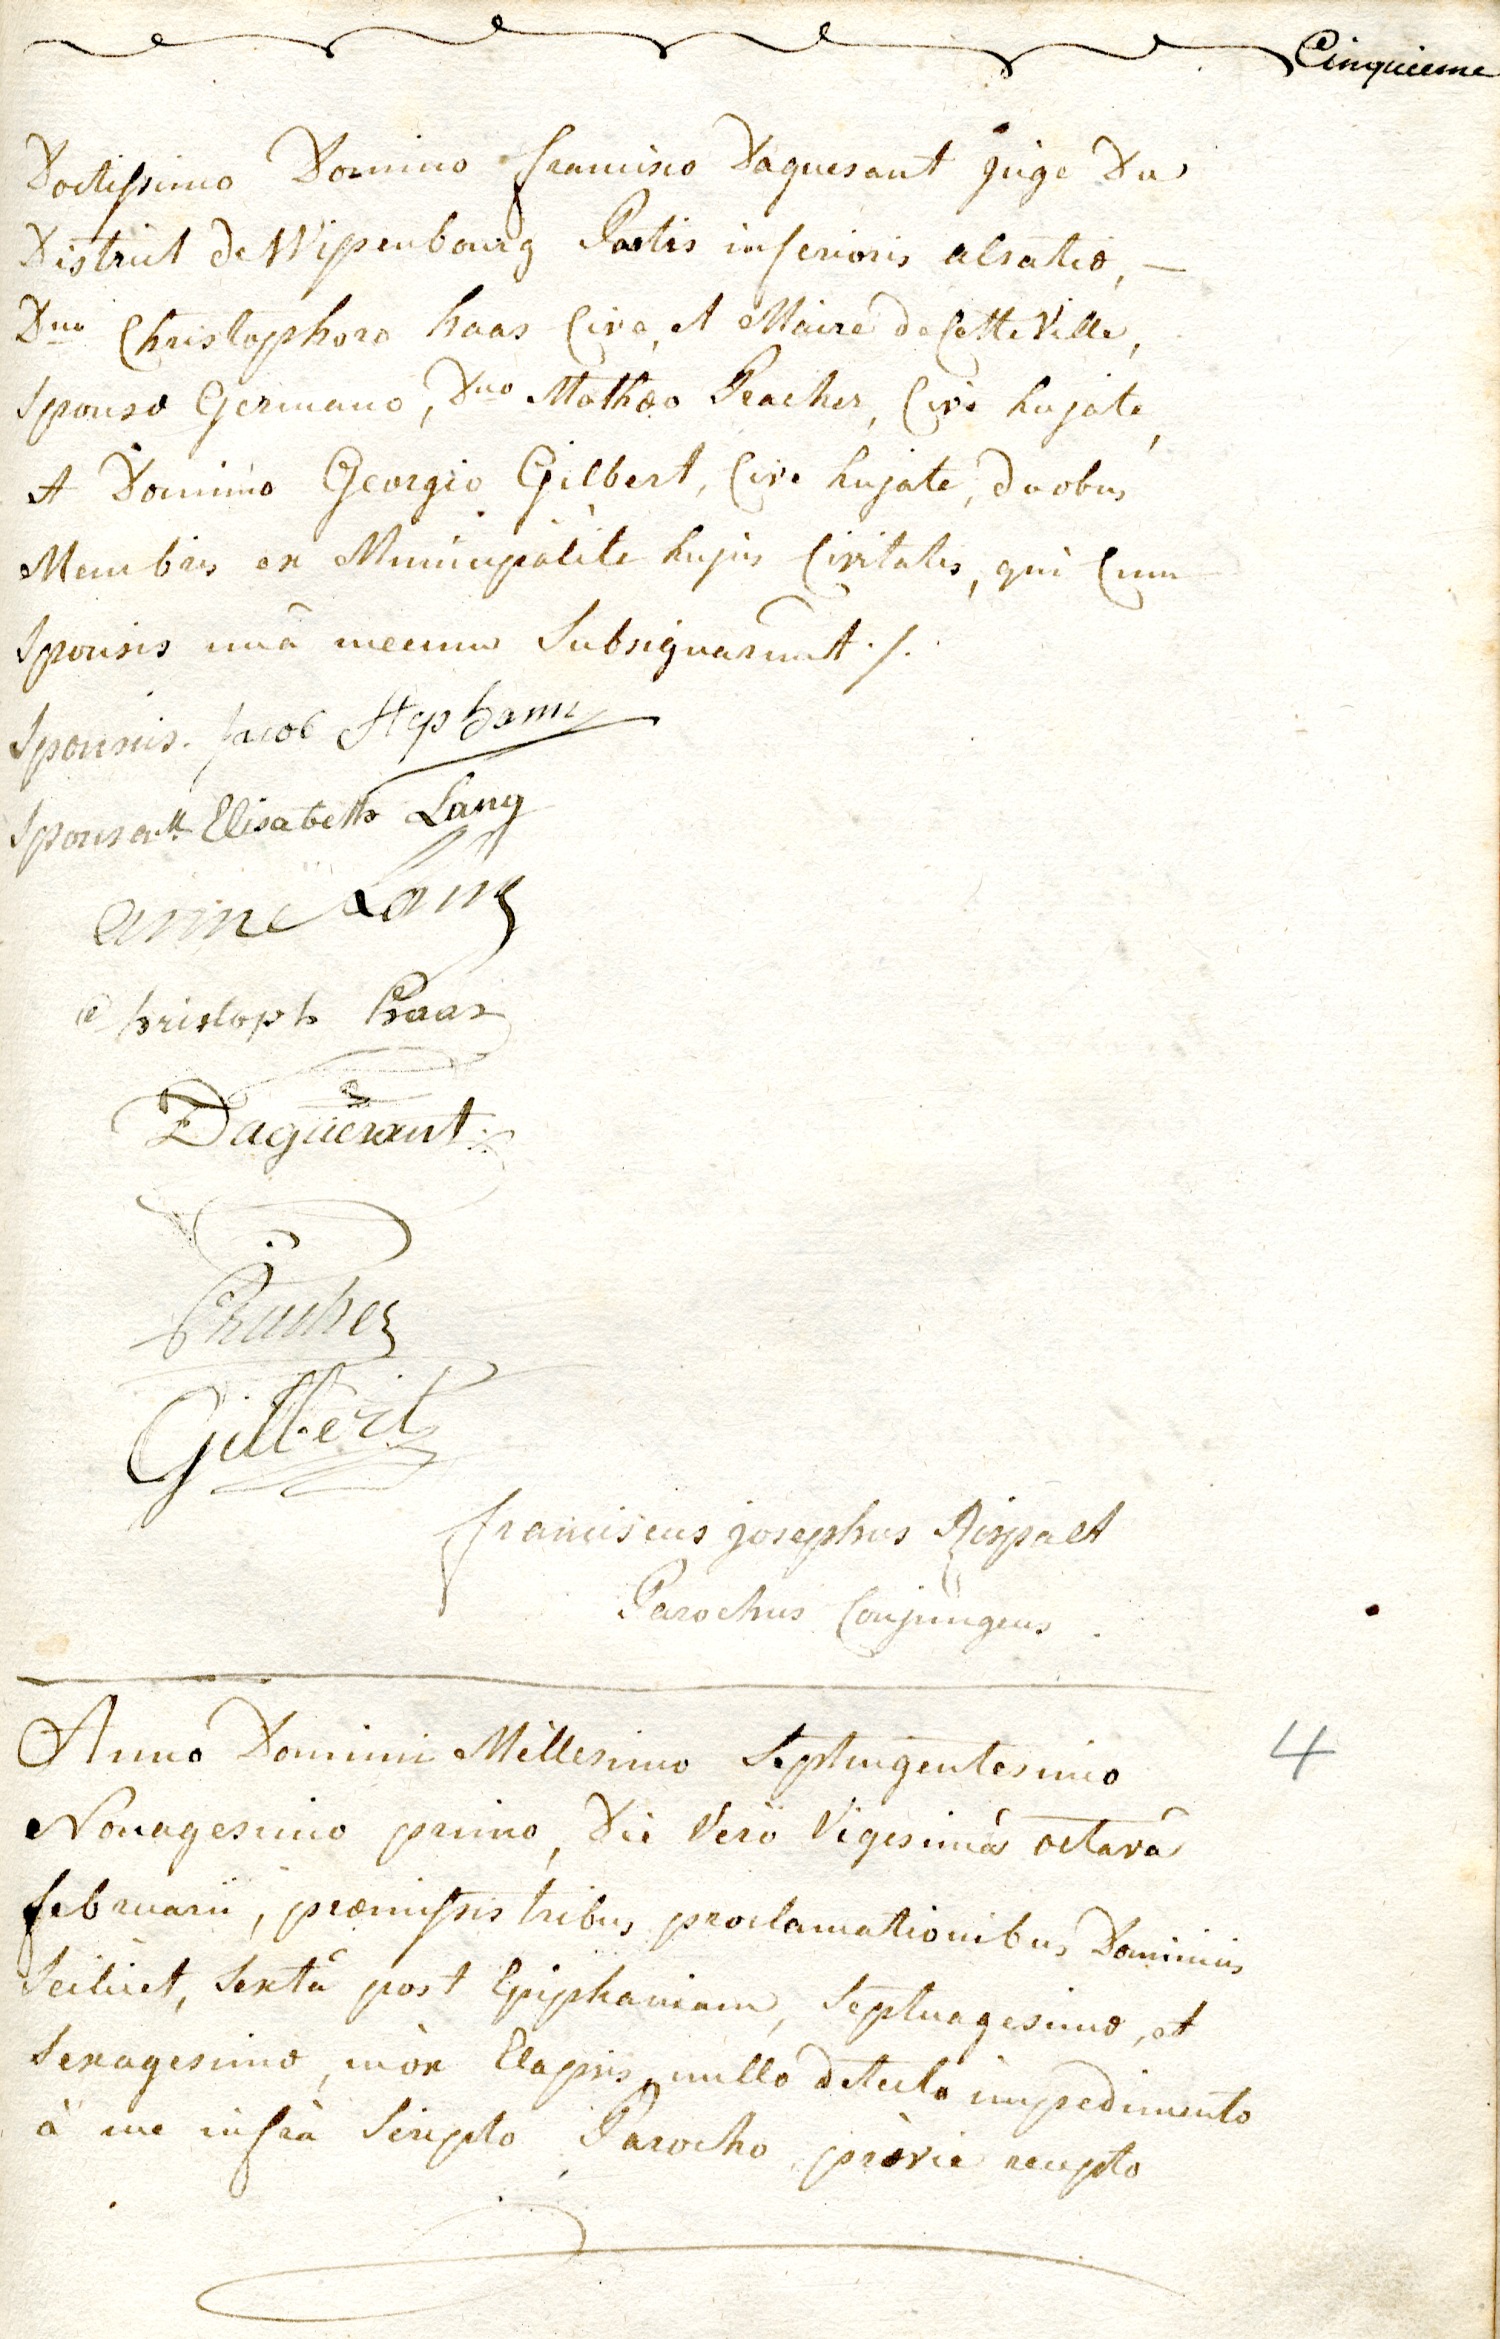 Cinquieme
Doctissimo Domino francisco Daguesant juge Du
District de Wissenbourg Partis inferioris alsatiæ, —
Dno Christophoro haas Cive, et Maire de Cette Ville,
Sponsæ Germano, Dno Mathæo Pracher, Cive hujate,
et Domino Georgio Gilbert, Cive hujate, duobus
Membris ex Municipalite hujus Civitatis, qui Cum
Sponsis unà mecum Subsignarunt ./.
Sponsus. Jacob Stephann
Sponsa Elisabetth Lang
anne Lang
Christoph haas
Daguesant
Pracher
Gilbert
franciscus josephus Rispalt
Parochus Conjungens.
Anno Domini Millesimo Septingentesimo
Nonagesimo primo, Die Vero Vigesimâ octavâ
februarii, præmissis tribus proclamationibus Dominicis
Scilicet, Sextâ post Epiphaniam, Septuagesimæ, et
Sexagesimæ, mòx Elapsis, nullo detecto impedimento
à me infrà Scripto Parocho prævie recepto
4